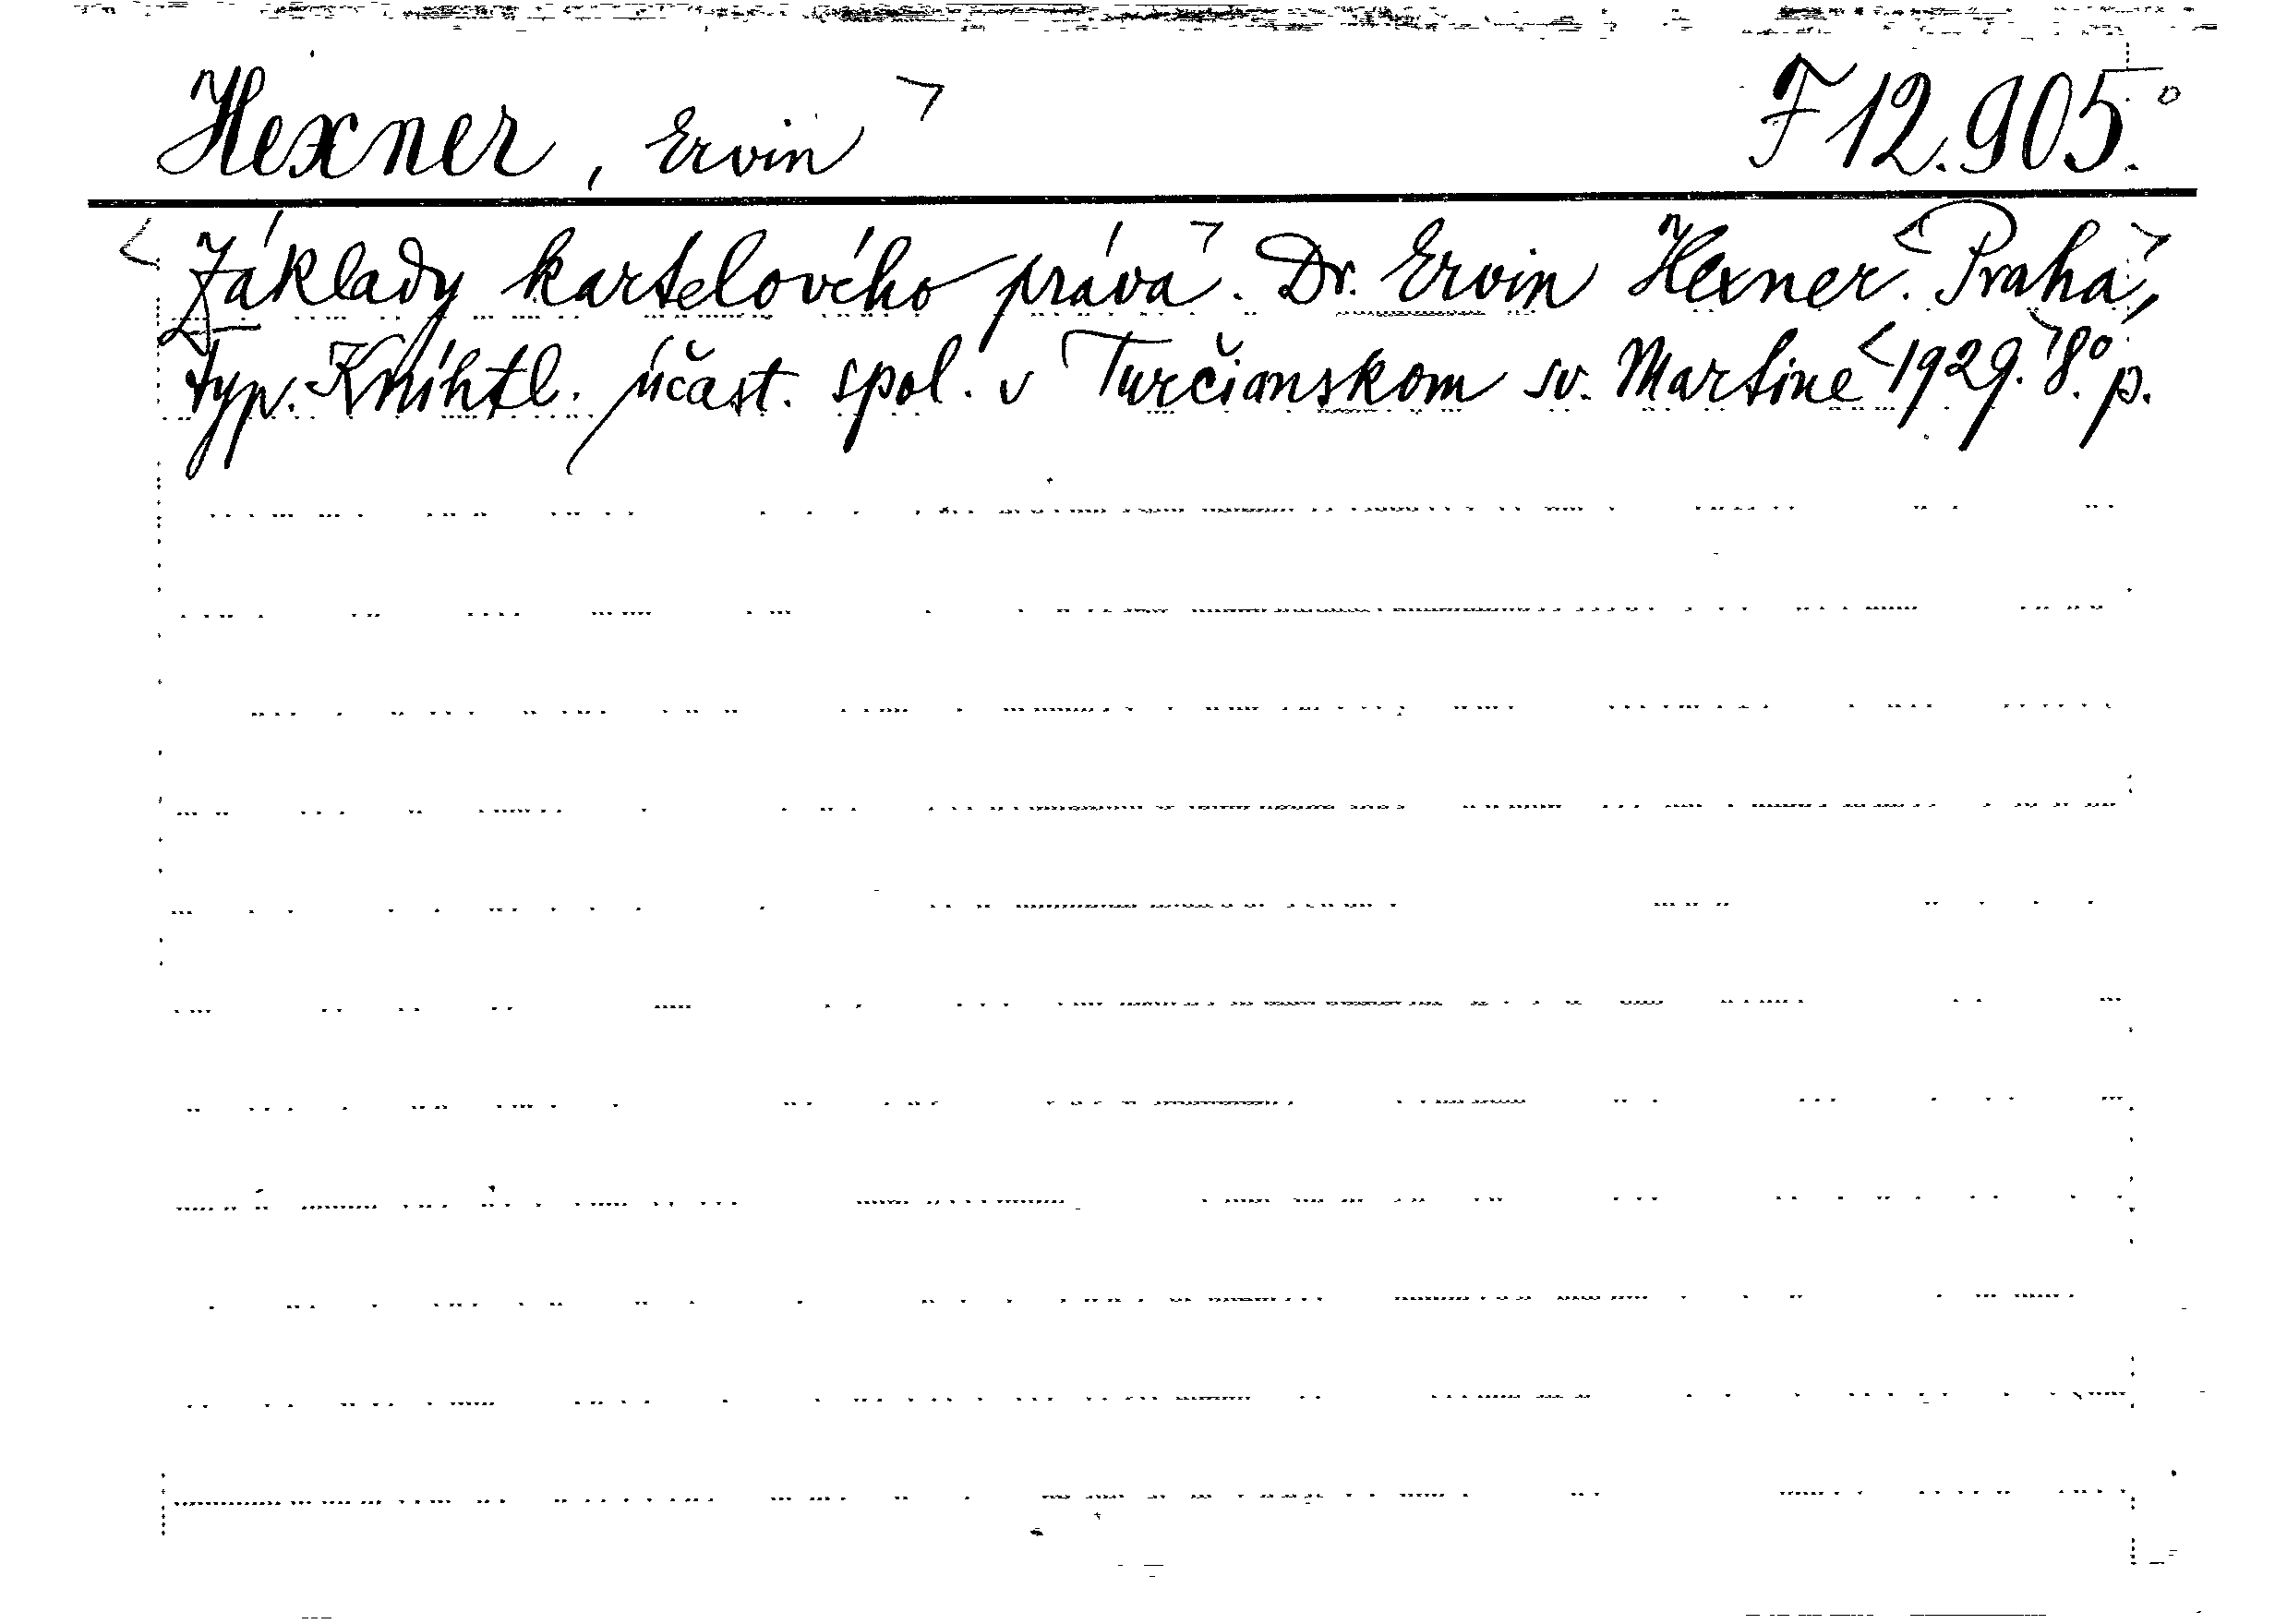 Hexner, Ervin F 12.905.°
Základy kartelového práva. Dr. Ervin Hexner. Praha,
typ. Kníhtl. účast. spol. v Turčianskom sv. Martine 1929. 8°. p.